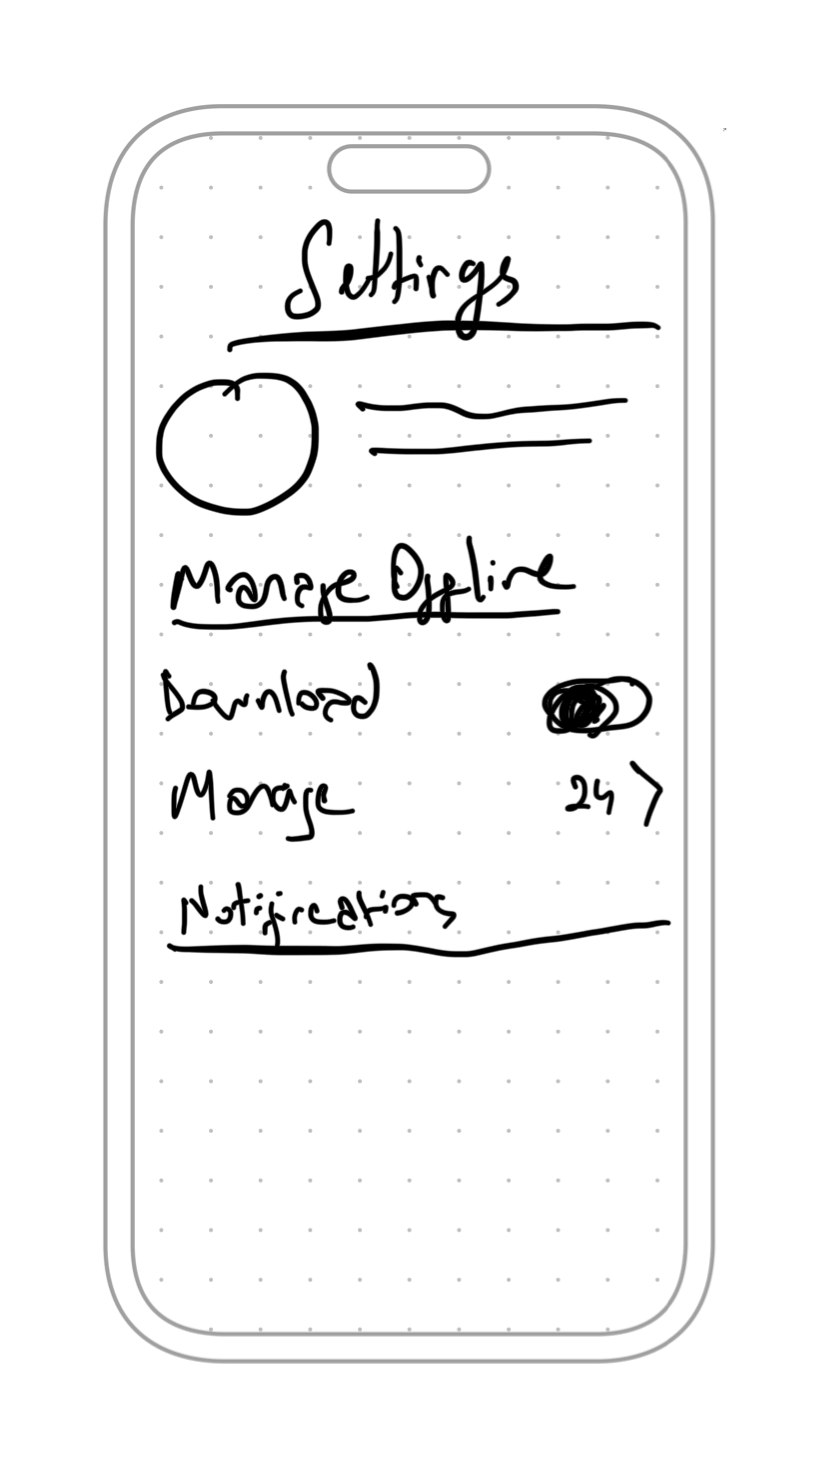 Settings
Manage Offline
Download
Manage 24 >
Notifications